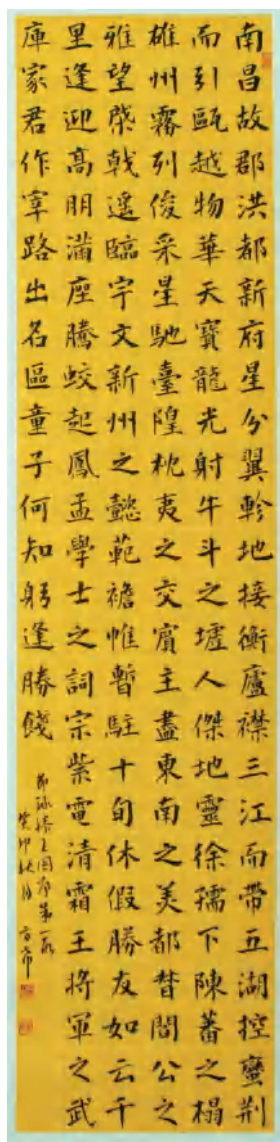 南昌故郡洪都新府星分翼軫地接衡廬襟三江而帶五湖控蠻荊
而引甌越物華天寶龍光射牛斗之墟人傑地靈徐孺下陳蕃之榻
雄州霧列俊采星馳臺隍枕夷之交賓主盡東南之美都督閻公之
雅望棨戟遙臨宇文新州之懿範襜帷暫駐十旬休假勝友如云千
里逢迎高朋滿座騰蛟起鳳孟學士之詞宗紫電清霜王將軍之武
庫家君作宰路出名區童子何知躬逢勝餞
節錄滕王閣序第一段
癸卯秋月